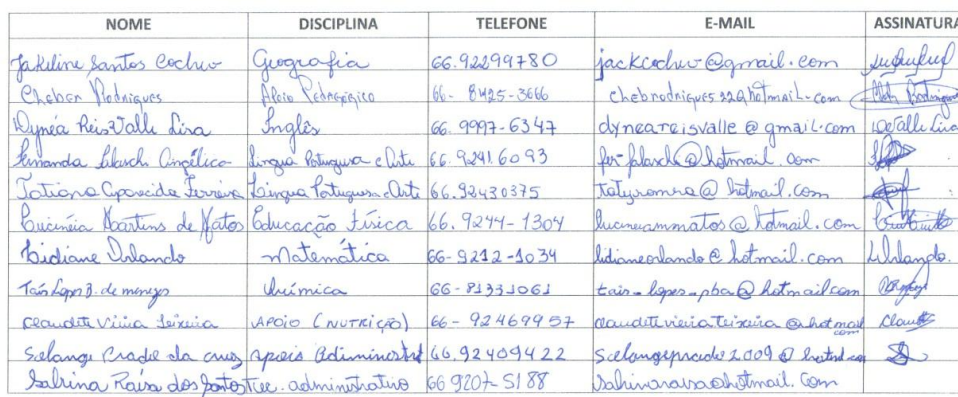 NOME DISCIPLINA TELEFONE E-MAIL ASSINATURA
Jakiline Santos Cochev Geografia 66.92299780 jackcochev@gmail.com
Cheber Rodrigues Apoio Pedagógico 66- 8425-3666 chebrodrigues22@hotmail.com
Dynéa Reis Valle Lira Inglês 66. 9997-6347 dyneareisvalle@gmail.com DeValle Lira
Fernanda Angélico Lingua Portuguesa e Arte 66.9241.6093 @hotmail.com
Tatiana Aparecida Ferreira Lingua Portuguesa e Arte 66.92430375 @hotmail.com
Lucinéia Martins de Matos Educação Física 66.9244-1304 @hotmail.com
Lidiane Orlando Matemática 66-9212-1034 lidianeorlando@hotmail.com LOrlando.
Taís Lopes B. de menezes Química 66-81331061 tais-lopes-pba@hotmail.com
Claudete Vieira Teixeira APOIO (NUTRIÇÃO) 66- 92469957 claudetevieirateixeira@hotmail.com
Solange Prade da cruz apoio Adiministrt 66.92409422 Solangeprade2009@hotmail.com
Sabrina Raisa dos Santos Tec. administrativo 66 9207-5188 sabrinaraisa@hotmail.com